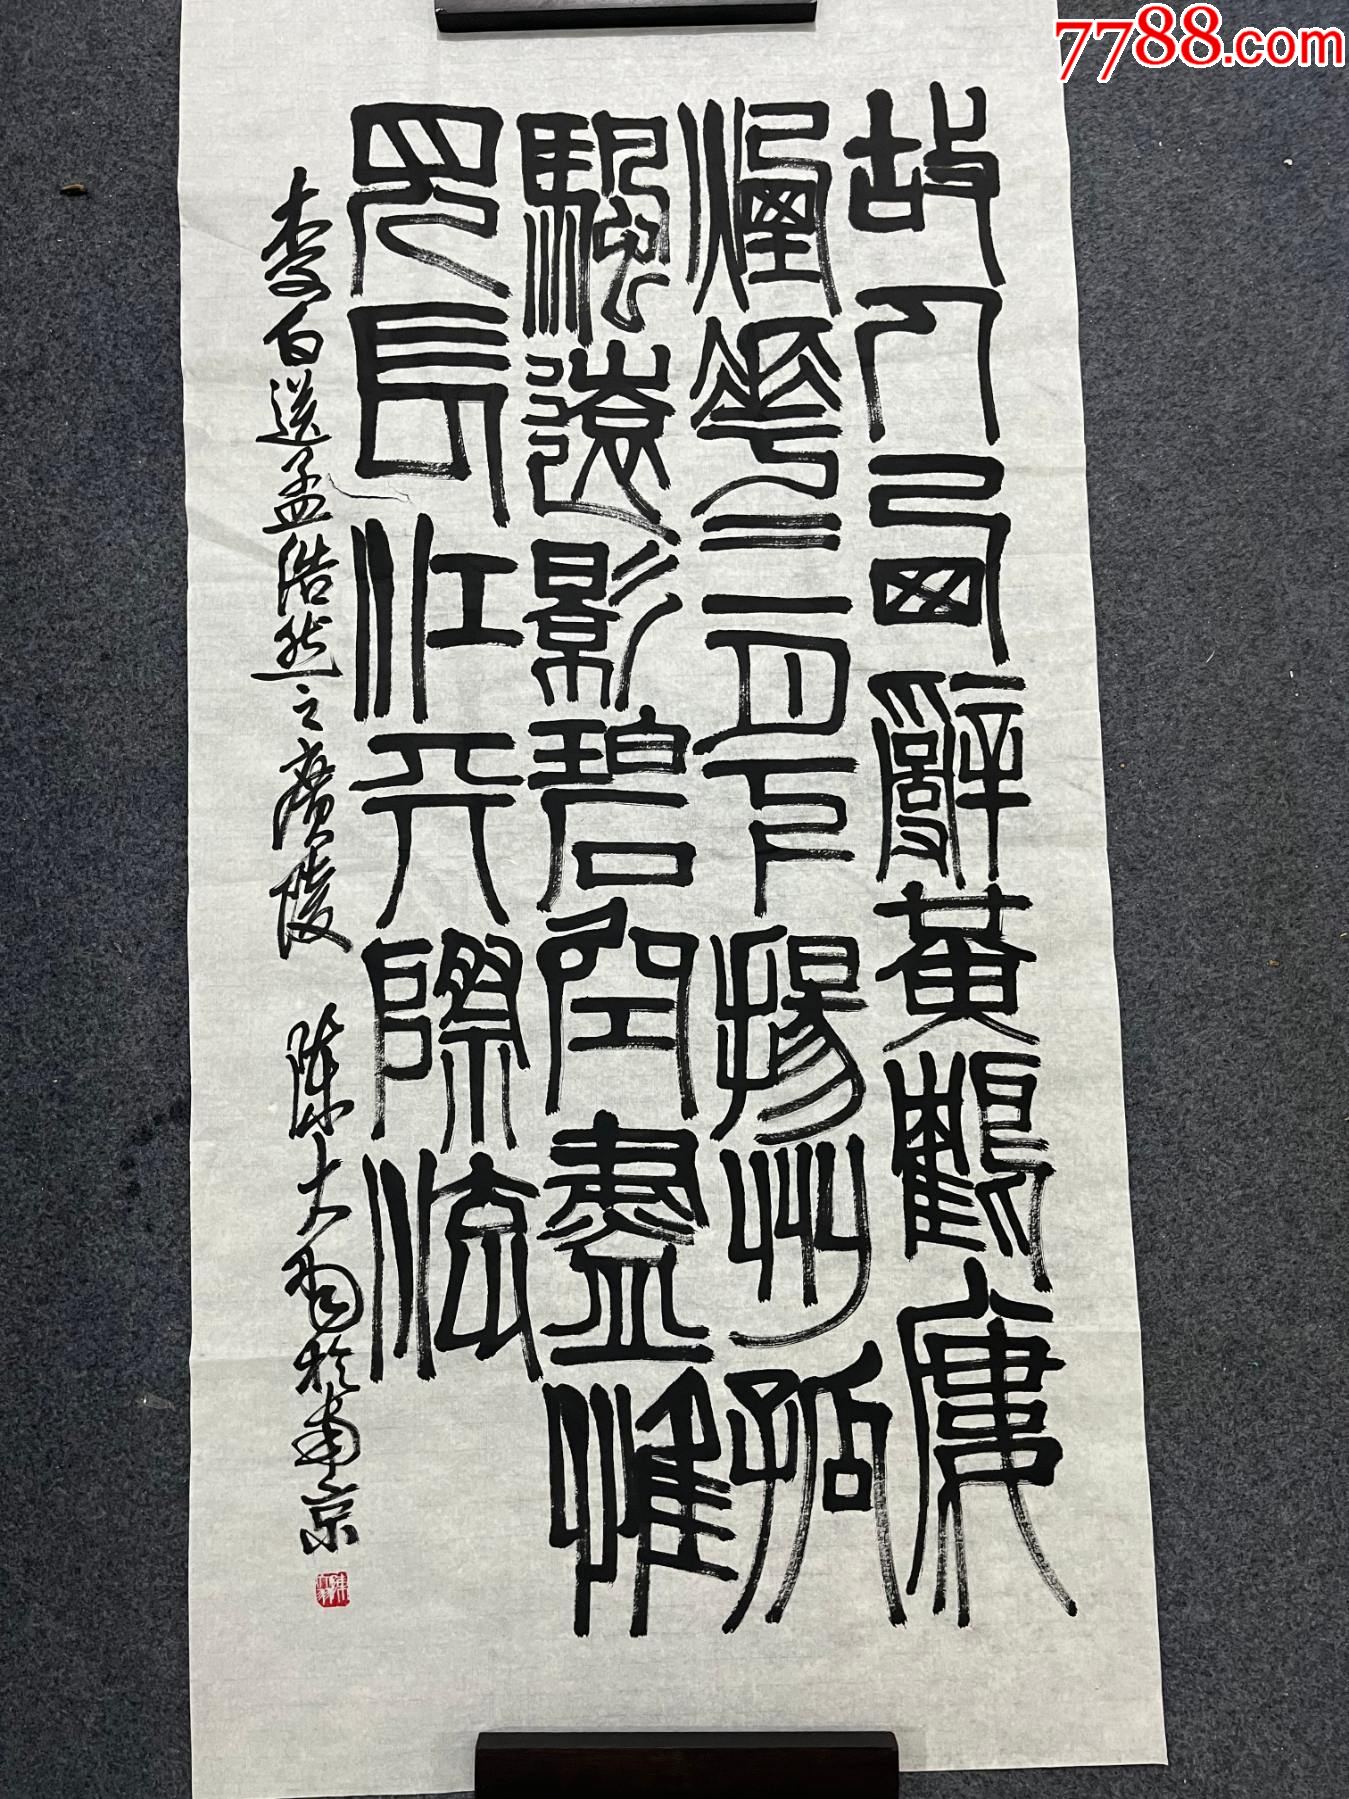 7788.com
故人西辭黃鶴廔
煙華三月下揚州孤
颿遠影碧空盡惟
見長江天際流
李白送孟浩然之廣陵 陳大羽於南京